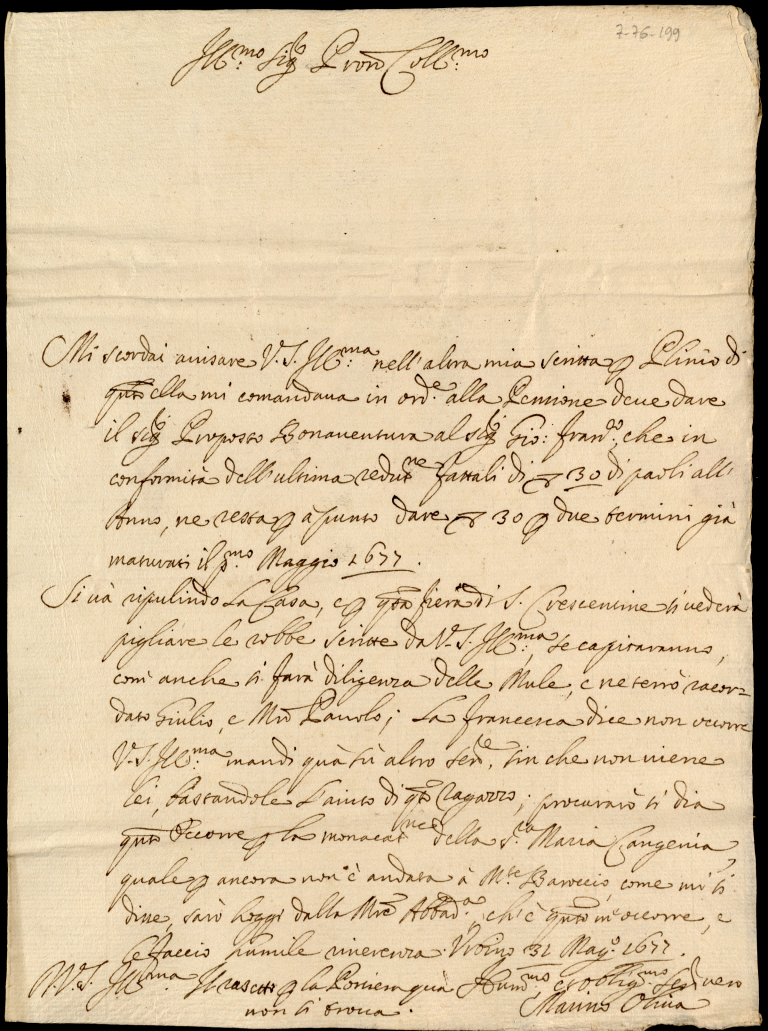 7-76-199
Ill:mo Sig.r Pron Coll:mo
Mi scordai auisare V.S. Ill:ma nell'altra mia scritta p Plinio di
qnto ella mi comandaua in ord.e alla Pensione deue dare
il Sig.r Proposto Bonauentura al Sig.r Gio: Fran.co, che in
conformità dell'ultima redut.ne fattali di 30 di paoli all'
Anno, ne resta p apunto dare 30 p due termini già
maturati il p.mo Maggio 1677.
Si uà ripulindo la Casa, e p qsta fiera di S. Crescentine si uederà
pigliare le robbe scritte da V.S. Ill:ma, se capitaranno,
com'anche si farà diligenza delle Mule, e ne terrò racor-
dato Giulio, e Mro Pauolo; La Francesca dice non occorre
V.S. Ill:ma mandi quà sù altro ser.e, sin che non uiene
lei, bastandole l'aiuto di qto ragazzo; procurarò si dia
qnto occorre p la monacat.ne della S.ra Maria Cangenia,
quale p ancora non è andata à M.te Baroccio, come mi si
disse, sarò hoggi dalla Mre Abbad.a, ch'è qnto m'occorre, e
le faccio humile riuerenza. Vrbino 31 Mag.o 1677.
D.V.S. Ill:ma Il rascetto p la Poniera quà
non si troua.
Hum.mo et oblig.mo Ser. uero
Mauro Oliua